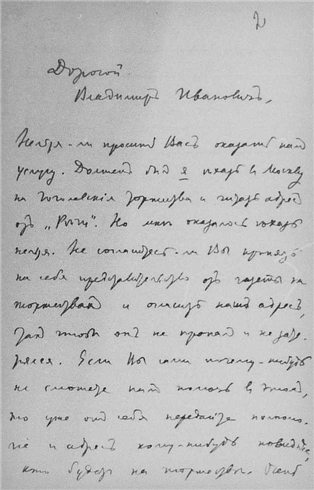 2
Дорогой
Владимиръ Ивановичъ,
Нельзя-ли просить Васъ оказать намъ
услугу. Долженъ былъ я ѣхать въ Москву
на Гоголевскія торжества и читать адресъ
отъ „Рѣчи". Но мнѣ оказалось ѣхать
нельзя. Не согласитесь-ли Вы принять
на себя представительство отъ газеты на
торжествахъ и огласить нашъ адресъ,
такъ чтобы онъ не пропалъ и не зате-
рялся. Если Вы сами почему-нибудь
не сможете намъ помочь въ этомъ,
то уже отъ себя передайте полномо-
чіе и адресъ кому-нибудь
кто будетъ на торжествахъ.